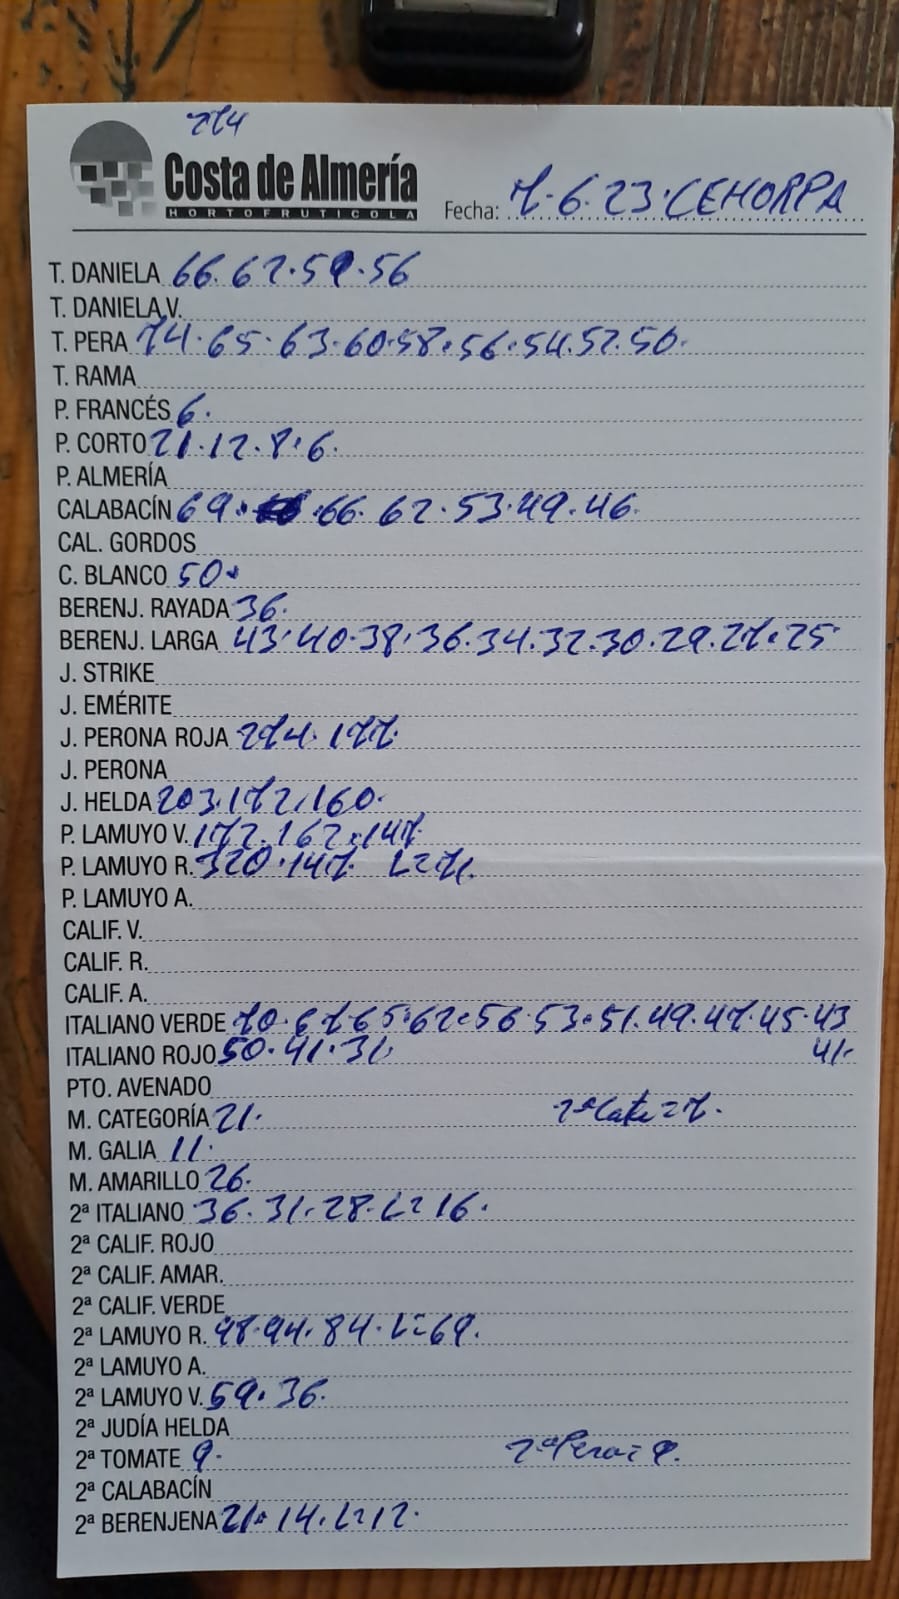 274
Costa de Almería
HORTOFRUTICOLA
Fecha: 7-6.23.CEHORPA
T. DANIELA 66.62.59.56
T. DANELA V.
T. PERA 74.65.63.60.58.56.54.52.50.
T. RAMA
P. FRANCÉS 6.
P. CORTO 21.12.8.6.
P. ALMERÍA
CALABACÍN 69. .66.62.53.49.46.
CAL. GORDOS
C. BLANCO 50.
BERENJ. RAYADA 36.
BERENJ. LARGA 43.40.38.36.34.32.30.29.27.25
J. STRIKE
J. EMÉRITE
J. PERONA ROJA 274.177.
J. PERONA
J. HELDA 203.172.160.
P. LAMUYO V. 172.162.147
P. LAMUYO R. 320.147. L=71.
P. LAMUYO A.
CALIF. V.
CALIF. R.
CALIF. A.
ITALIANO VERDE 70.67.65.62.56.53.51.49.47.45.43
ITALIANO ROJO 50.41.31. 41.
PTO. AVENADO
M. CATEGORÍA 21. 2ª Cate=7.
M. GALIA 11.
M. AMARILLO 26.
2ª ITALIANO 36.31.28.L=16.
2ª CALIF. ROJO
2ª CALIF. AMAR.
2ª CALIF. VERDE
2ª LAMUYO R. 98.94.84.L=69.
2ª LAMUYO A.
2ª LAMUYO V. 59.36.
2ª JUDÍA HELDA
2ª TOMATE 9. 2ª Pera=9.
2ª CALABACÍN
2ª BERENJENA 21.14.L=12.